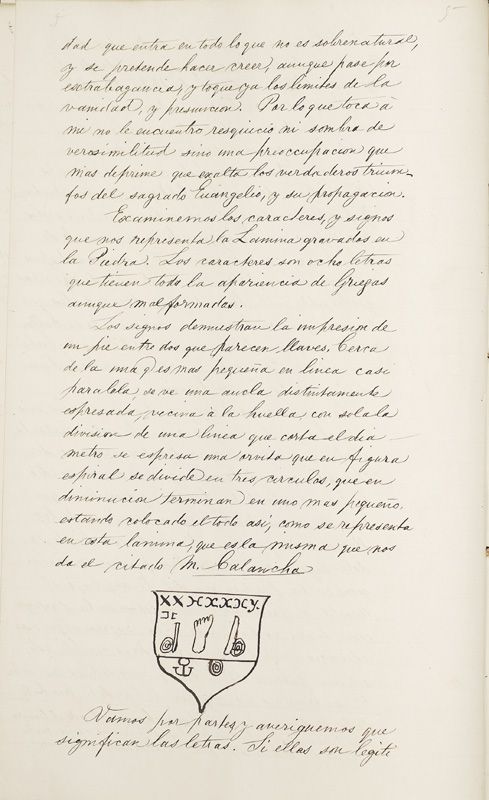 5
dad que entra en todo lo que no es sobrenatural,
y se pretende hacer creer, aunque pase por
extrabagancia, y toque ya los limites de la
vanidad, y presuncion. Por lo que toca a
mi no le encuentro resquicio ni sombra de
verosimilitud sino una preoccupacion que
mas deprime que exalta los verdaderos triun-
fos del sagrado Euangelio, y su propagacion.
Examinemos los caracteres, y signos
que nos representa la Lamina gravados en
la Piedra. Los caracteres son ocho letras
que tienen toda la apariencia de Griegas
aunque mal formadas.
Los signos demuestran la impresion de
un pie entre dos que parecen llaves. Cerca
de la una q es mas pequeña en linea casi
paralela, se ve una ancla distintamente
espresada, vecina à la huella, con sola la
division de una linea que corta el dia-
metro se espresa una orvita que en figura
espiral se divide en tres circulos, que en
diminucion terminan en uno mas pequeño,
estando colocado el todo asi, como se representa
en esta lamina, que es la misma que nos
da el citado M. Calancha
XXHXXHY.
Vamos por partes, y averiguemos que
significan las letras. Si ellas son legiti